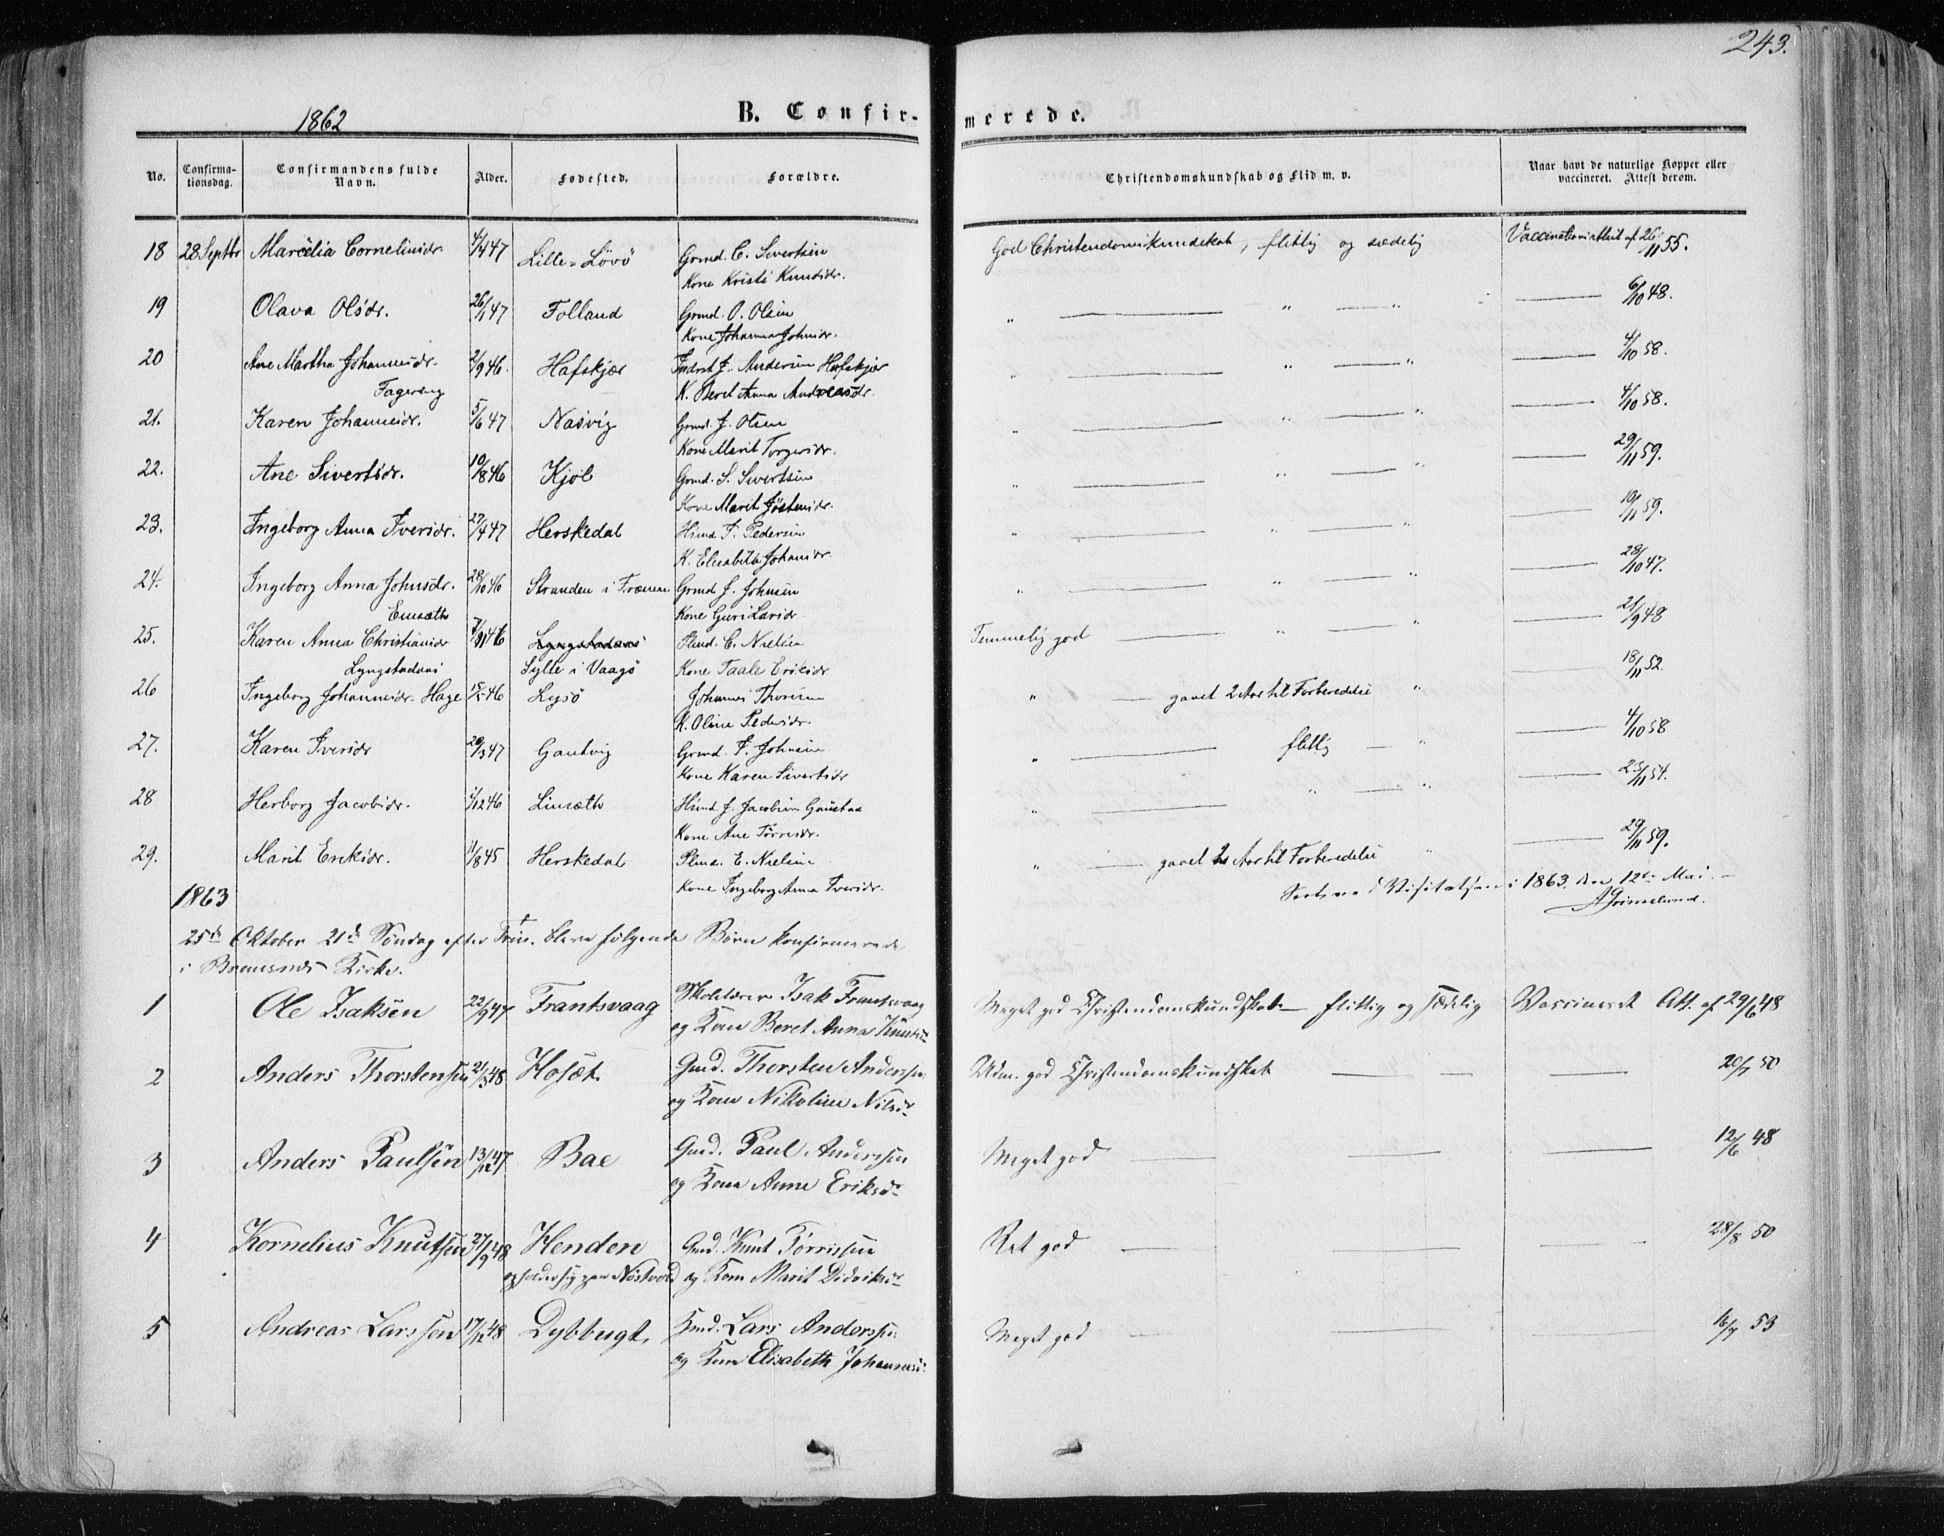 243.
1862
B. Confirmerede.
No. Confirmationsdag. Confirmandens fulde Navn. Alder. Fødested. Forældre. Christendomskundskab og Flid m. v. Naar havt de naturlige Kopper eller vaccineret. Attest derom.
18 28 Septbr Marcelia Corneliusdr. 4/4 47 Lille-Lövö Grmd. C. Sivertsen God Christendomskundskab, flittig og sædelig Vaccinationsattest af 26/11 55.
Kone Kristi Knudsdr.
19 Olava Olsdr. 26/1 47 Folland Grmd. O. Olsen " " " 6/10 48.
Kone Johanna Johnsdr.
20 Ane Martha Johannesdr. 2/9 46. Hafskjær Indrst J. Andersen Hafskjær " " " 4/10 58.
Fagereng K. Beret Anna Andreasdr.
21. Karen Johannesdr. 5/6 47 Nasvig Grmd. J. Olsen " " " 4/10 58.
Kone Marit Torgersdr.
22. Ane Sivertsdr. 10/8 46 Kjöl Grmd. S. Sivertsen " " " 29/11 59.
Kone Marit Jöstensdr.
23. Ingeborg Anna Iversdr. 27/4 47 Herskedal Hsmd I. Pedersen " " " 19/11 59.
K. Elisabeth Johansdr.
24. Ingeborg Anna Johnsdr. 28/10 46 Stranden i Frænen Grmd J. Johnsen " " " 28/10 47.
Kone Guri Larsdr.
25. Karen Anna Christiansdr 7/11 46 C. Nielsen Temmelig god " " 21/9 48
Lyngstadaas Sylte i Vaagö Kone Taale Eriksdr
26 Ingeborg Johannesdr. Hage 46 Lysö Johannes Thorsen " gaaet 2 Aar til Forberedelse " 18/11 52.
K. Oline Pedersdr.
27. Karen Iversdr 20/3 47 Gautvig Grmd. I. Johnsen " flittig " 4/10 58
Kone Karen Sivertsdr
28 Herborg Jacobsdr. 1/12 46 Linsæth Hsmd J. Jacobsen Gaustad " " " 23/11 54.
Kone Ane Törresdr.
29. Marit Eriksdr. 11/8 45 Herskedal E. Nielsen " gaaet 2 Aar til Forberedelse " 29/11 59.
Kone Ingeborg Anna Iversdr.
Visitatsen i 1863. den 12te Mai.
A Grimelund.
1863
25de Oktober 21de Söndag efter Trin. bleve fölgende Börn konfirmerede
i Bremsnes Kirke.
1 Ole Isaksen 22/9 47 Frantsvaag Skolelærer Isak Frantsvaag Meget god Christendomskundskab flittig og sædelig Vaccineret Att. af 29/6 48
og Kone Beret Anna Knutsd.
2 Anders Thorstensen 21/3 48 Hosæt Gmd. Thorsten Anderssen Udm. god Christendomskundskab 20/7 50
og Kone Nikoline Nilsd.
3 Anders Paulsen 13/12 47 Bae Gmd. Paul Anderssen Meget god 12/6 48
og Kone Anne Eriksd.
4 Kornelius Knutsen 27/9 48 Henden Gmd. Knut Törrissen Ret god 28/8 50
opholder sig paa Nöstvold og Kone Marit Didriksd.
5 Andreas Larssen 17/12 48 Dybbugt Lars Anderssen Meget god 16/7 53
og Kone Elisabeth Johannesd.